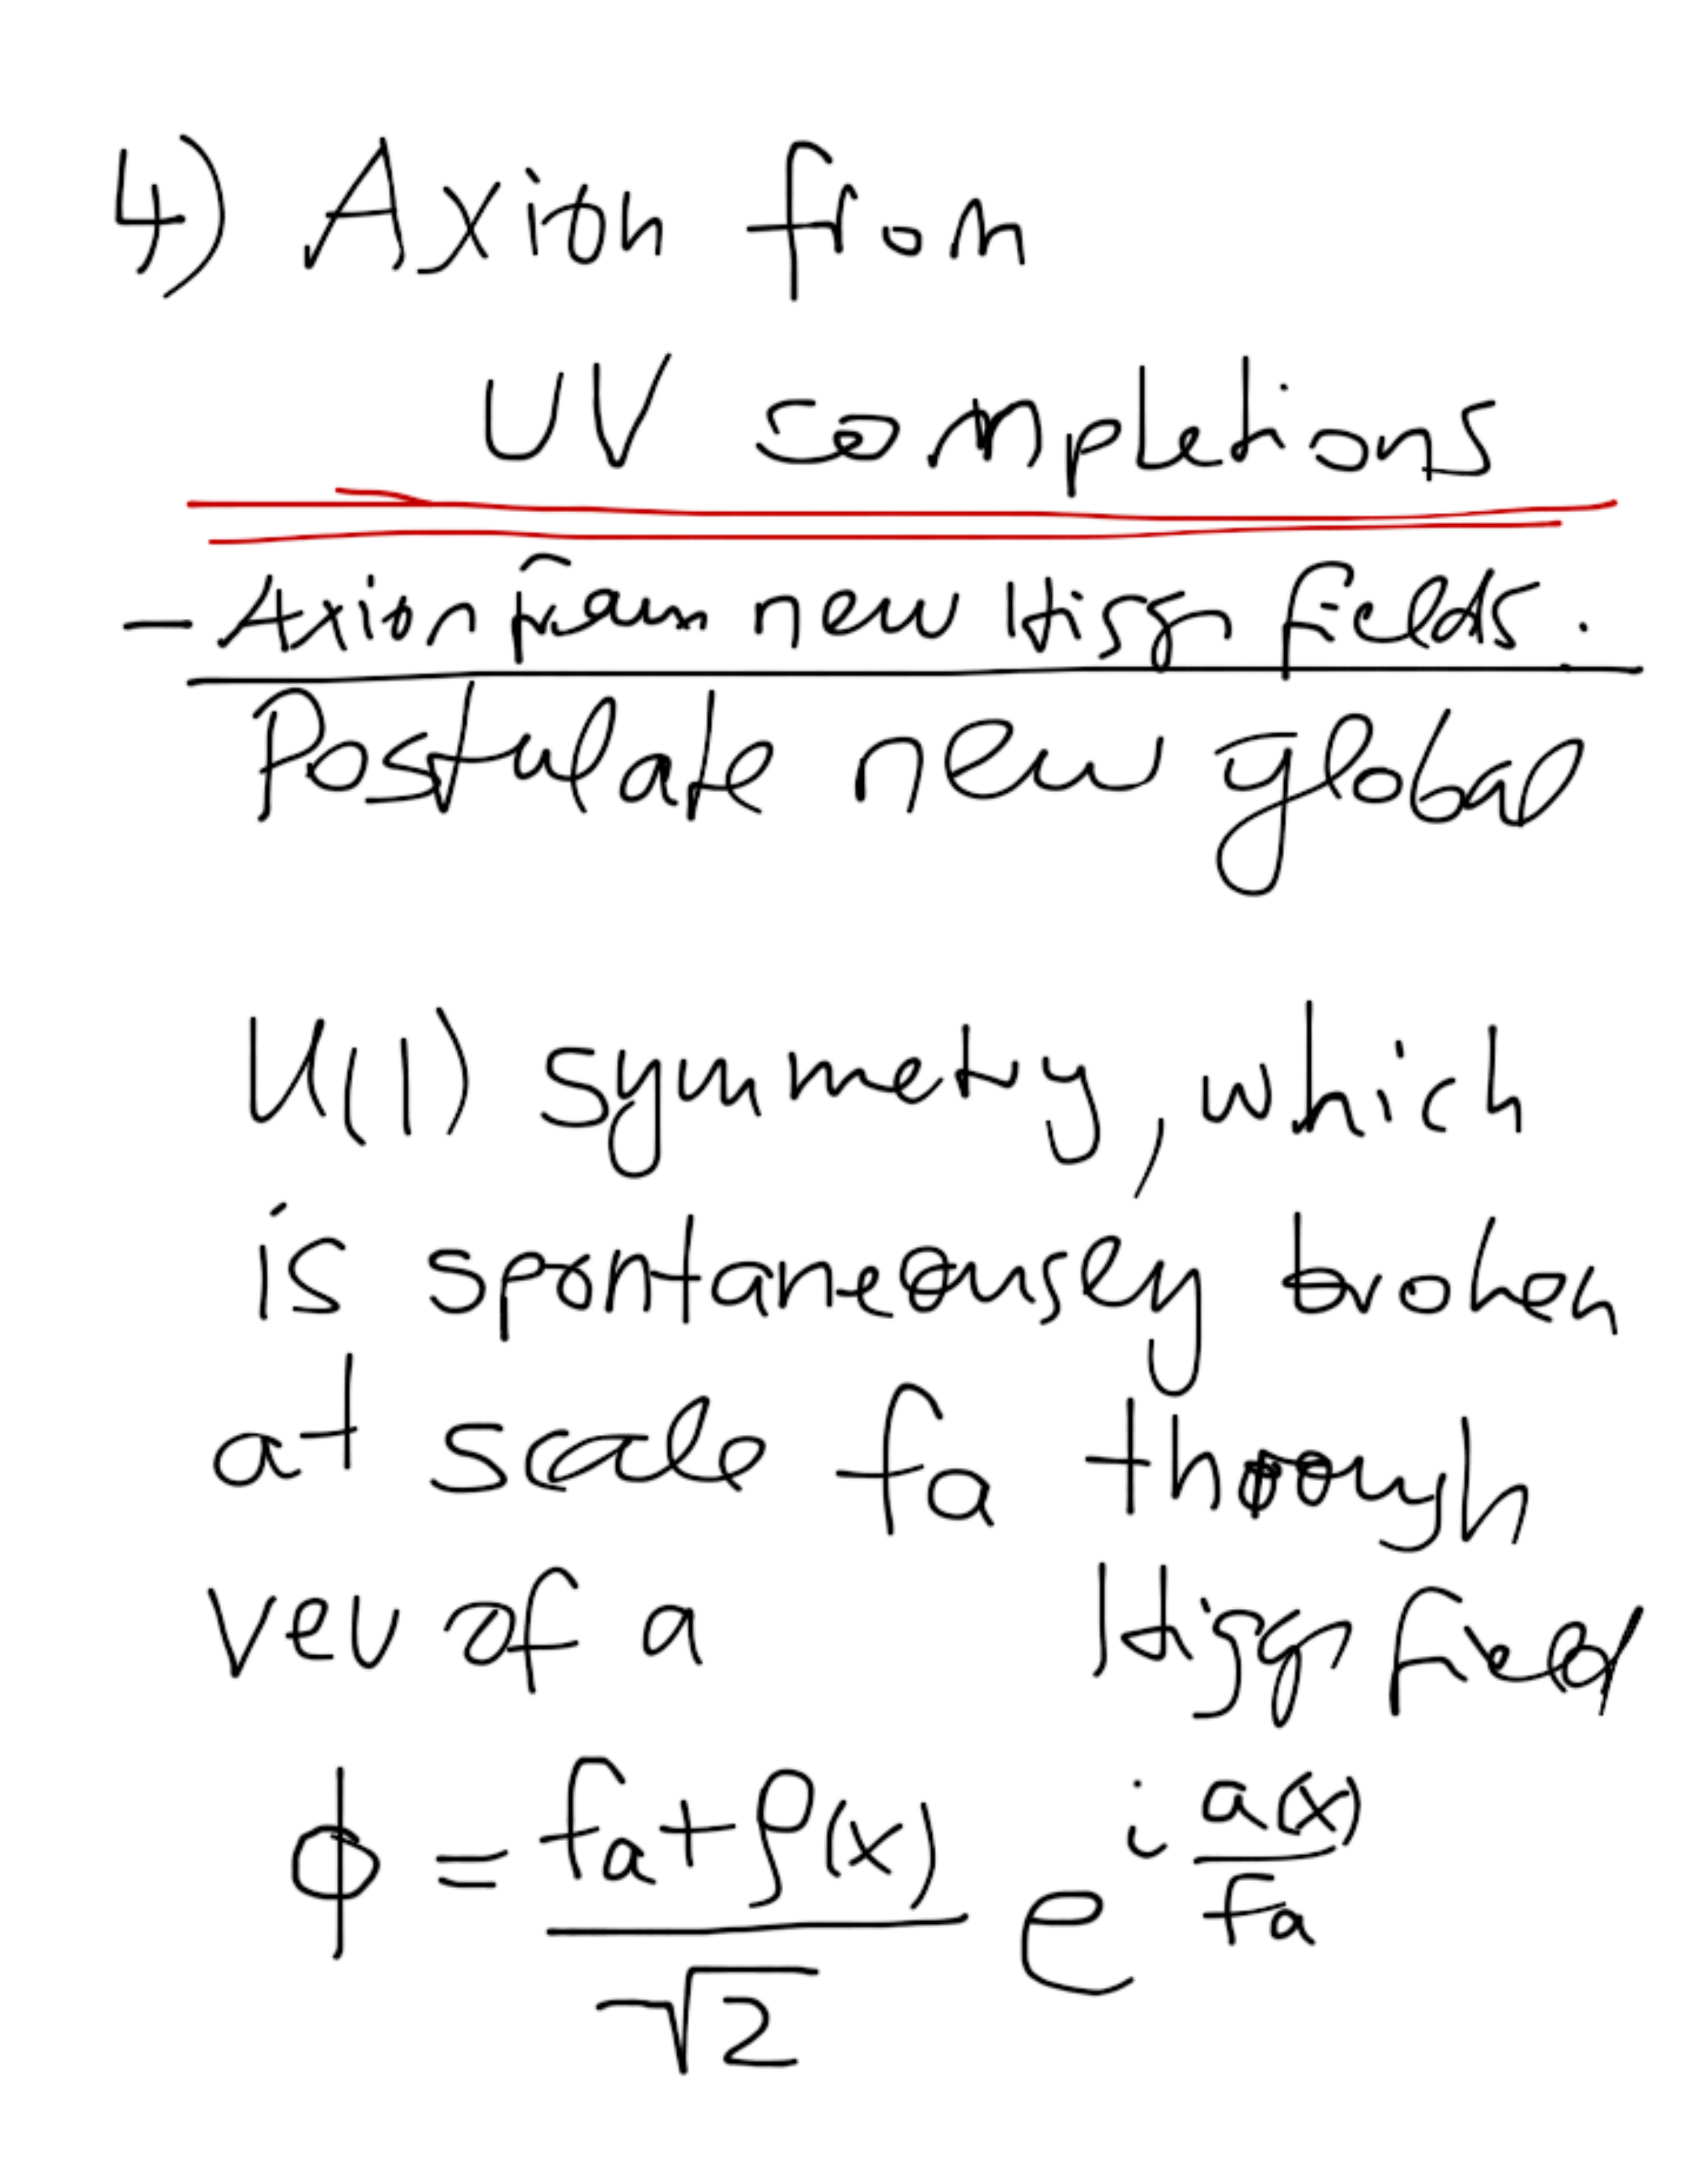 4) Axion from
UV completions
- Axion from new Higgs fields.
Postulate new global
U(1) symmetry, which
is spontaneously broken
at scale fa through
vev of a Higgs field
ϕ = \frac{f_a + ρ(x)}{\sqrt{2}} e^{i \frac{a(x)}{f_a}}